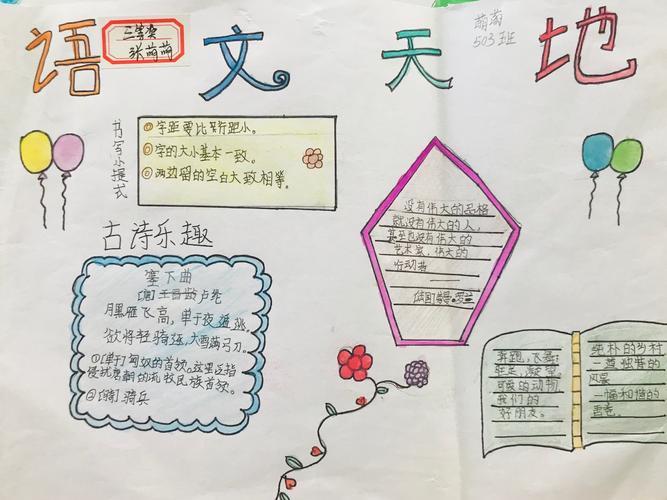 语文天地
三等奖
张萌萌
503班
书写小提式
①字距要比行距小。
②字的大小基本一致。
③两边留的空白大致相等。
古诗乐趣
塞下曲
[唐] 卢纶
月黑雁飞高,单于夜遁逃,
欲将轻骑逐,大雪满弓刀。
①[单于]匈奴的首领。这里指
侵扰唐朝的流牧民族首领。
②[骑]骑兵
没有伟大的品格
就没有伟大的人,
甚至也没有伟大的
艺术家,伟大的
行动者
罗兰
奔跑,飞舞;
驻足,凝望。
可爱的动物
我们的
好朋友。
纯朴的乡村
一道独特的
风景
一幅和谐的
画卷。